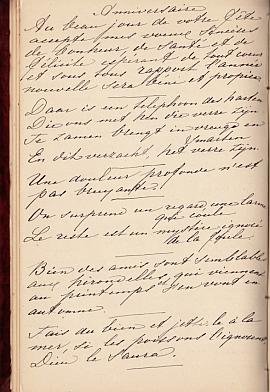 Anniversaire
Au beau jour de votre fête
acceptez mes voeux sincères
de bonheur de santé et de
félicité espérant de tout coeur
et sous tous rapport l'année
nouvelle sera bene et propice
Daar is een telephoon des harten
Die ons met hen die verre zijn
Te zamen brengt in vreugd en
smarten
En dit verzacht, het verre zijn.
Une douleur profonde n'est
pas bruyante!
On surprend un regard, une larme
qui coule
Le reste est un mystère ignoré
de la foule.
Bien des amis sont semblables
aux hirondelles, qui viennent
au printemps s'en vont en
automne.
Fais du bien et jette le à la
mer, si les poissons l'ignorent
Dieu le saura.